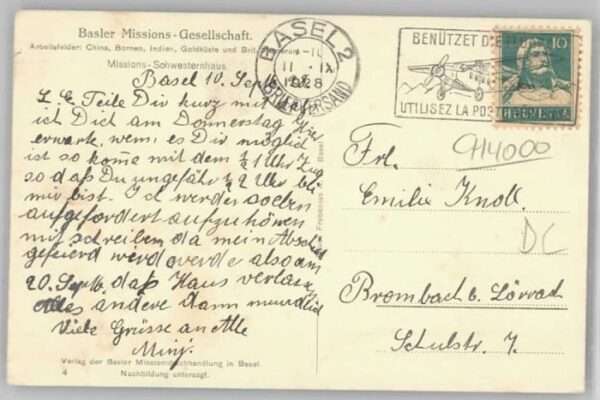 Basler Missions-Gesellschaft.
Arbeitsfelder: China, Borneo, Indien, Goldküste und Brit.
Missions-Schwesternhaus.
Basel 10. Sept. 1928
L. E. Teile Dir kurz mit
ich Dich am Donnerstag
erwarte, wenn es Dir möglich
ist so kome mit dem 1 Uhr Zug
so daß Du ungefähr ½ 2 Uhr bei
mir bist. Ich werde soeben
aufgefordert aufzuhören
mit schreiben da mein Abschied
gefeierd werd werde also am
20. Septb. daß Haus verlassen
Alles andere Dann mundlich
Viele Grüsse an Alle
Minj.
Verlag der Basler Missionsbuchhandlung in Basel.
4 Nachbildung untersagt.
BASEL 2
11. IX
1928
BRIEFVERSAND
BENÜTZET DIE
UTILISEZ LA POSTE
10
HELVETIA
914000
DC
Frl.
Emilie Knoll.
Brombach b. Lörrach
Schulstr. 7.